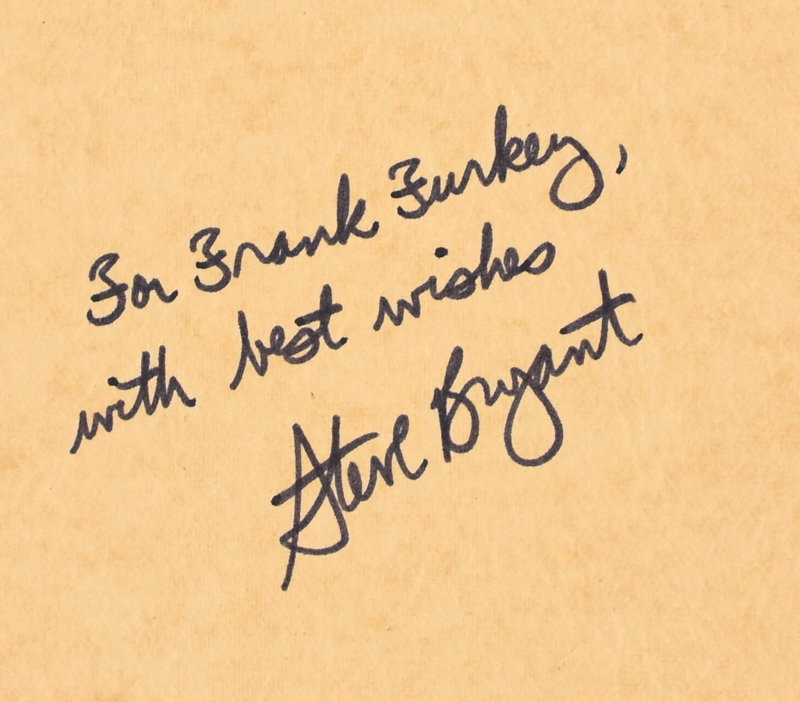 For Frank Furkey,
with best wishes
Steve Bryant